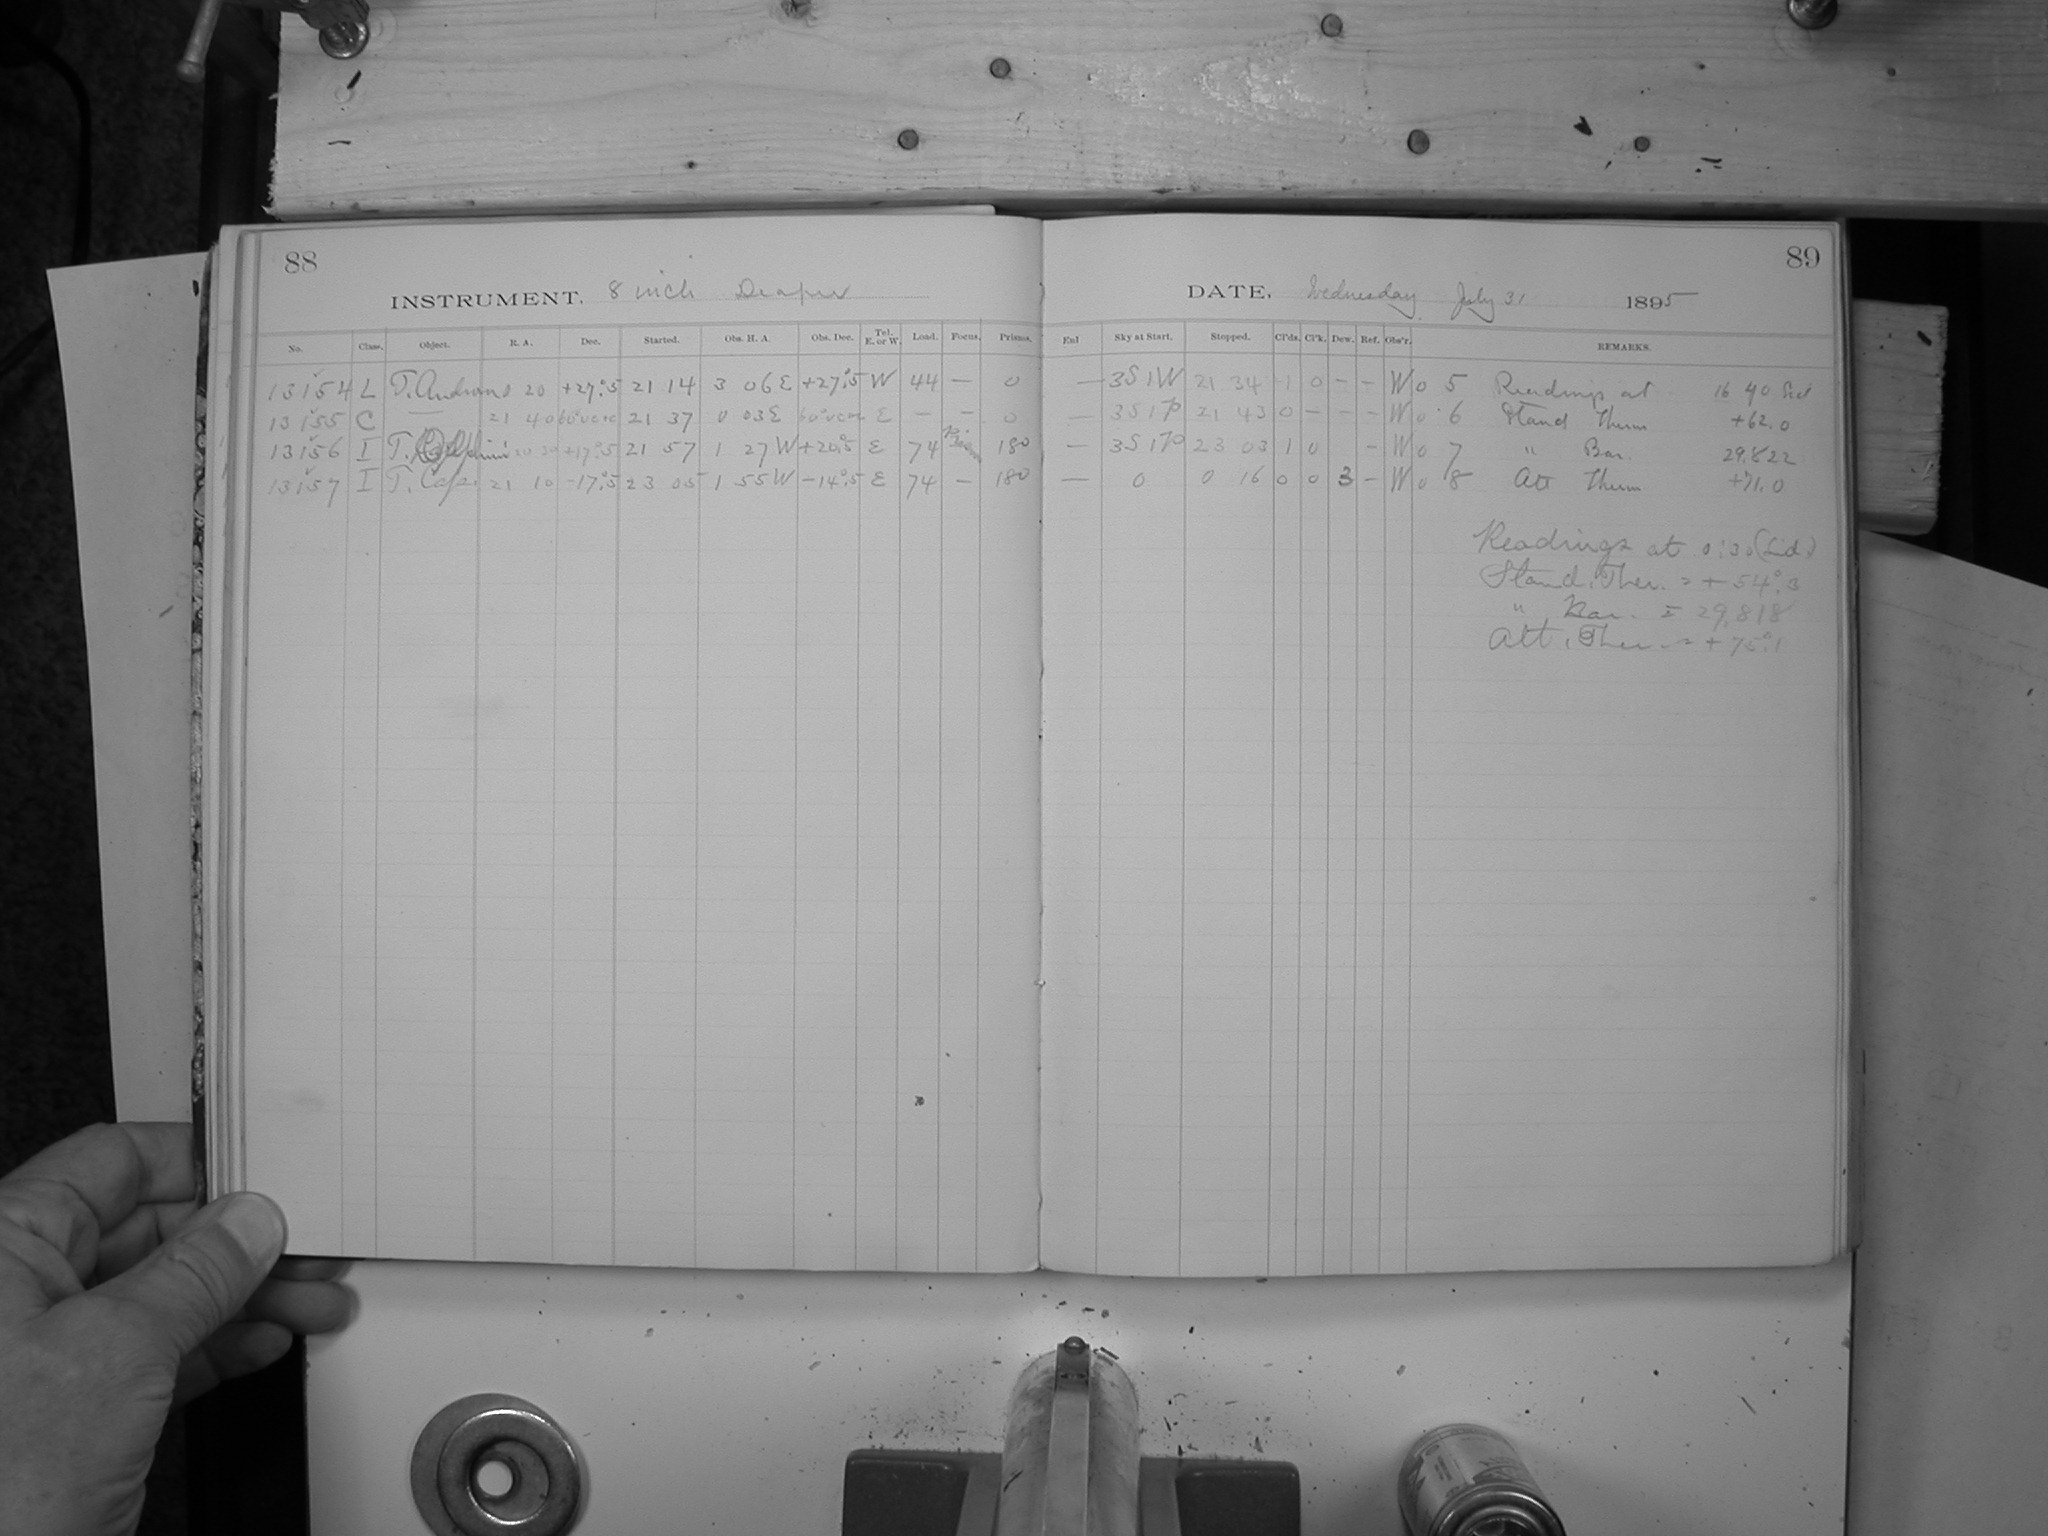 88
INSTRUMENT, 8 inch Draper
No. Class. Object. R. A. Dec. Started. Obs. H. A. Obs. Dec. Tel. E. or W. Load. Focus. Prisms.
13154 L T. Androm 0 20 +27°.5 21 14 3 06 E +27°.5 W 44 — 0
13155 C — 21 40 21 37 0 03 E E — — 0
13156 I T. Delphini 20 30 +17°.5 21 57 1 27 W +20°.5 E 74 180
13157 I T. Capri 21 10 -17°.5 23 05 1 55 W -14°.5 E 74 — 180
89
DATE, Wednesday July 31 1895
Enl Sky at Start. Stopped. Cl'ds. Cl'k. Dew. Ref. Obs'r. REMARKS.
— 3S1W 21 34 1 0 - - W 0 5 Readings at 16 40 Sid
— 3S1P 21 43 0 - - - W 0 6 Stand Therm +62.0
— 3S1P 23 03 1 0 - W 0 7 " Bar. 29.822
— 0 0 16 0 0 3 - W 0 8 Att Therm +71.0
Readings at 0:30 (Sid.)
Stand. Ther. = + 54°.3
" Bar. = 29.818
Att. Ther = + 75°.1